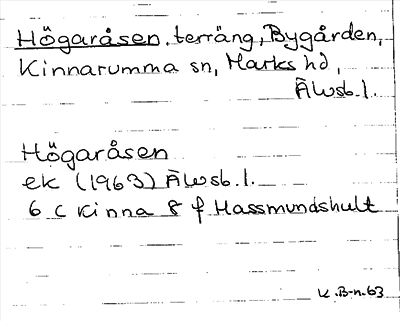 Högaråsen, terräng, Bygården,
Kinnarumma sn, Marks hd,
Älvsb. l.
Högaråsen
ek (1963) Älvsb. l.
6 C Kinna 8 f Hassmundshult
K. B-n. 63